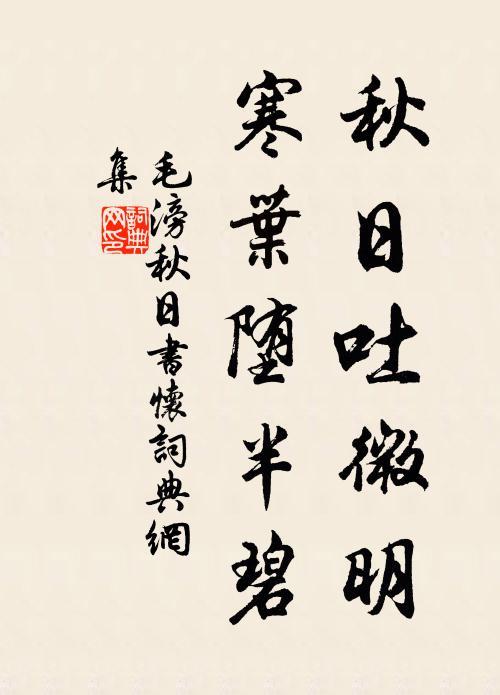 秋日吐微明
寒葉堕半碧
毛滂秋日書懷詞典網
集
詞典網印